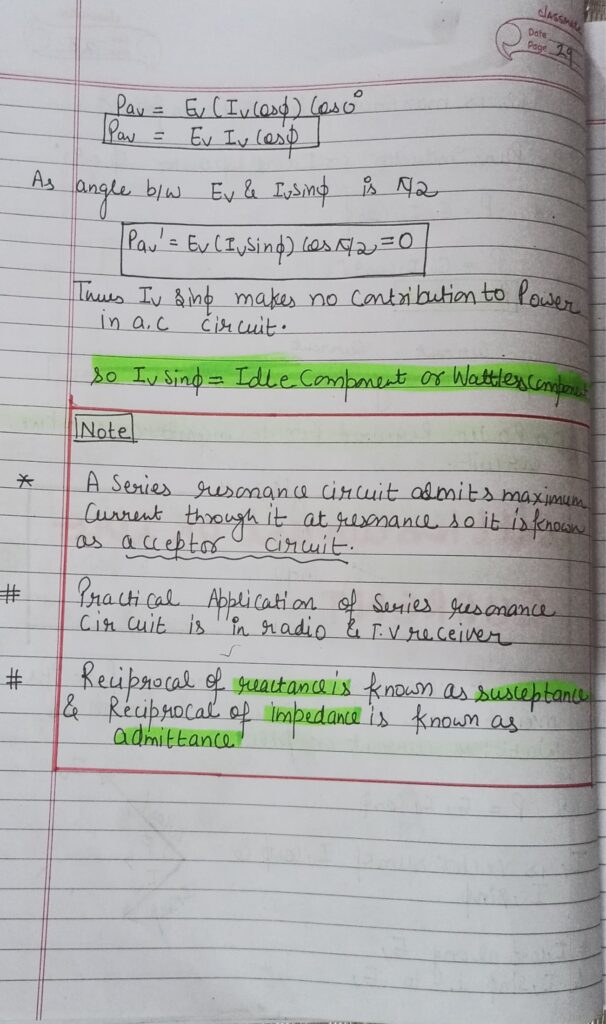 classmate
Date
Page 29
Pav = Ev (Iv cosϕ) cos0°
Pav = Ev Iv cosϕ
As angle b/w Ev & Iv sinϕ is π/2
Pav' = Ev (Iv sinϕ) cos π/2 = 0
Thus Iv sinϕ makes no contribution to Power
in a.c circuit.
so Iv sinϕ = Idle Component or Wattless Component
Note
* A Series resonance circuit admits maximum
Current through it at resonance so it is known
as acceptor circuit.
# Practical Application of Series resonance
Circuit is in radio & T.V receiver
# Reciprocal of reactance is known as susceptance
& Reciprocal of impedance is known as
admittance